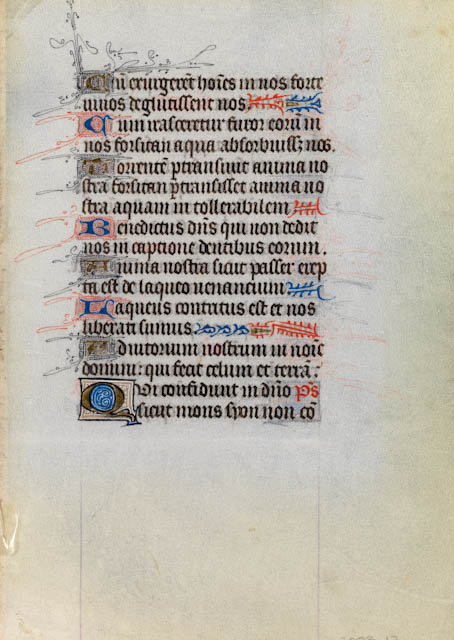 Cū exurgerēt hoīes in nos forte
vivos deglutissent nos.
Cum irasceretur furor eorū in
nos forsitan aqua absorbuissꝫ nos.
Torrentē ptransivit anima no
stra forsitan ptransisset anima no
stra aquam in tollerabilem
Benedictus dn̄s qui non dedit
nos in captione dentibus eorum.
Anima nostra sicut passer erep
ta est de laqueo venantium
Laqueus contritus est et nos
liberati sumus
Adiutorium nostrum in noīe
domini: qui fecit celum et terrā:
Qvi confidunt in dn̄o p̄s
sicut mons syon non cō